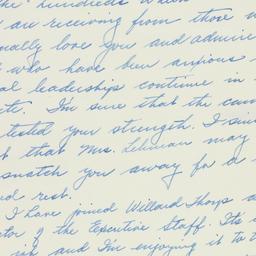 the hundreds which
are receiving from those w
ually love you and admire
who have been anxious
al leadership continue in
te. I'm sure that the cam
tested your strength. I sin
t that Mrs. Lehman may
snatch you away for a
ed rest.
I have joined Willard Thorp a
tor of the Executive Staff. It's
ish and I'm enjoying it to t